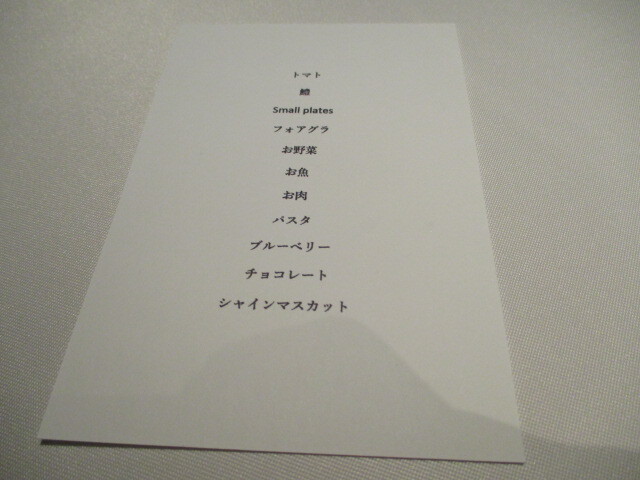 トマト
鱧
Small plates
フォアグラ
お野菜
お魚
お肉
パスタ
ブルーベリー
チョコレート
シャインマスカット